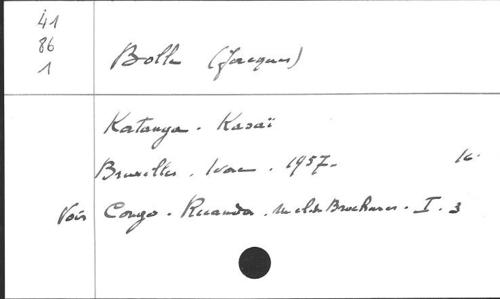 41
86
1
Bolle (Jacques)
Katanga. Kasaï
Bruxelles. . 1957. 16.
Voir Congo. Ruanda. Brochures. I. 3